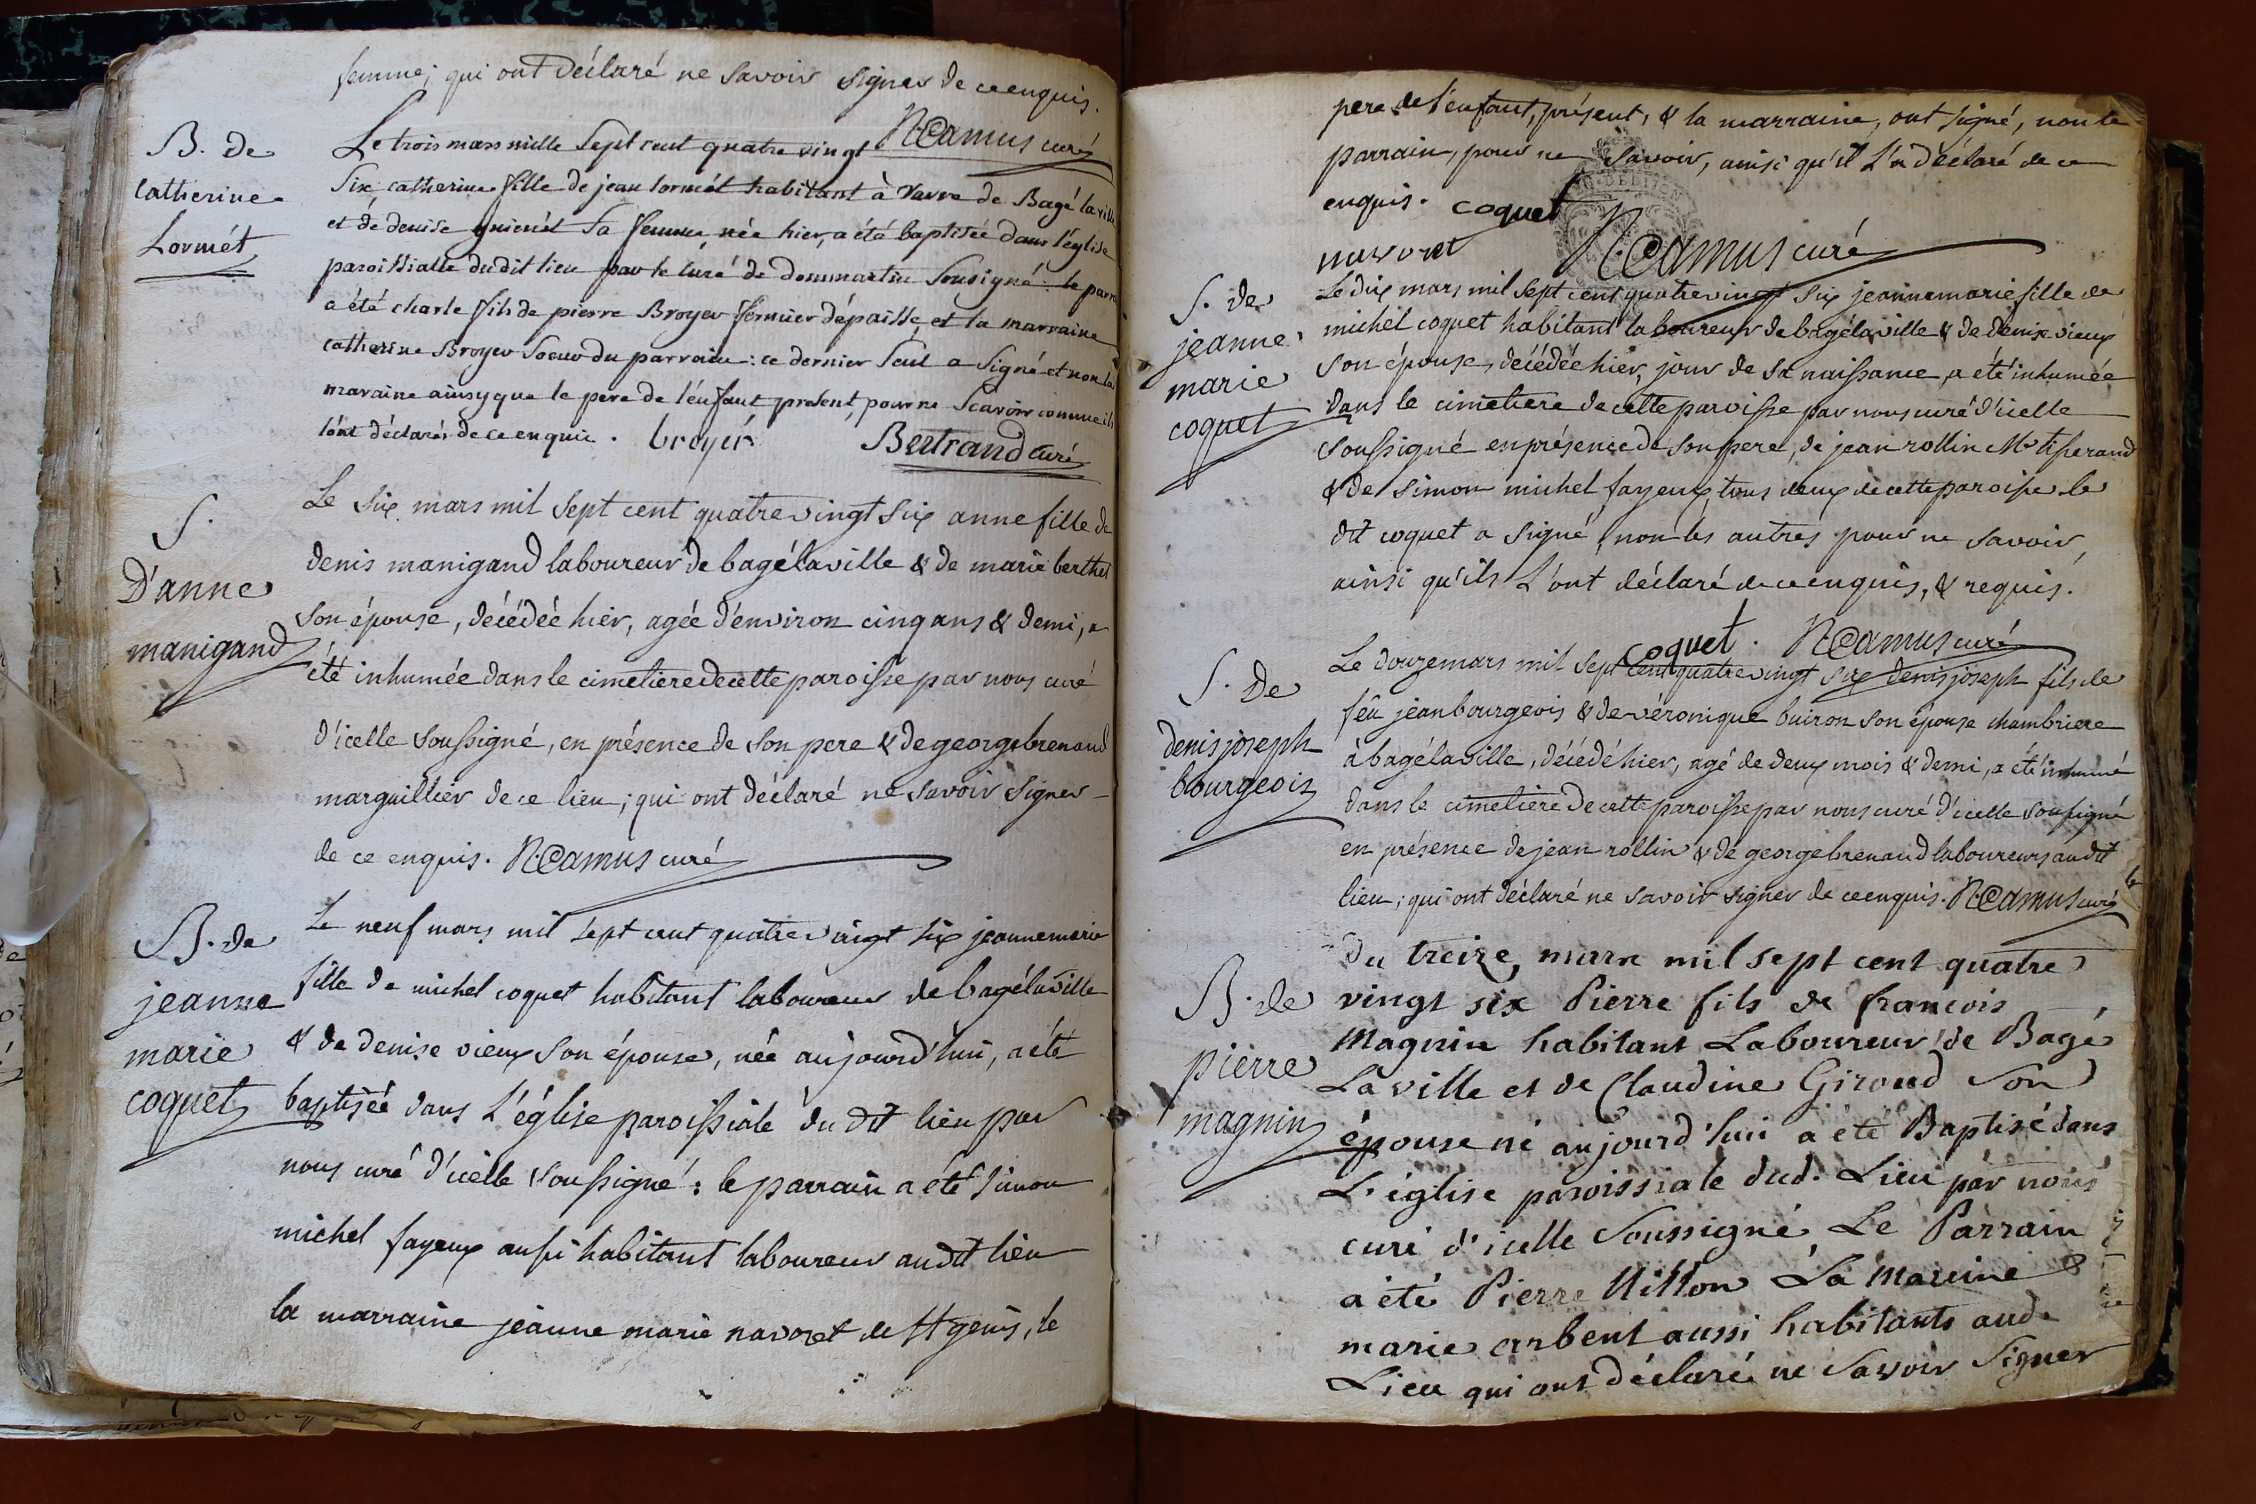 femme; qui ont déclaré ne savoir signer de ce enquis.
N Camus curé
B. de
catherine
Lormét
Le trois mars mille sept cent quatre vingt
six catherine fille de jean lormét habitant à vavre de Bagé la ville
et de denise guienét sa femme née hier, a été baptisée dans l'église
paroissialle dudit lieu par le curé de dommartin sousigné: le parrain
a été charle fils de pierre Broyer fermier dépaisse, et la marraine
catherine Broyer soeur du parrain: ce dernier seul a signé et non la
maraine ainsy que le pere de l'enfant present, pour ne scavoir comme ils
l'ont déclarés de ce enquis. broyér Bertrand curé
S.
D'anne
manigand
Le six mars mil sept cent quatre vingt six anne fille de
denis manigand laboureur de bagélaville & de marie berthet
son épouse, décédée hier, agée d'environ cinq ans & demi, a
été inhumée dans le cimetiere de cette paroisse par nous curé
d'icelle soussigné, en présence de son pere & de george brenand
marguillier de ce lieu; qui ont déclaré ne savoir signer
de ce enquis. N Camus curé
B. de
jeanne
marie
coquet
Le neuf mars mil sept cent quatre vingt six jeannemarie
fille de michel coquet habitant laboureur de bagélaville
& de denise vieux son épouse, née aujourd'hui, a été
baptisée dans l'église paroissiale du dit lieu par
nous curé d'icelle soussigné: le parrain a été simon
michel fayeux aussi habitant laboureur audit lieu
la marraine jeanne marie navoret de st genis, le
pere de l'enfant, présent, & la marraine, ont signé, non le
parrain, pour ne savoir, ainsi qu'il l'a déclaré de ce
enquis. coquet
navoret N Camus curé
S. de
jeanne
marie
coquet
Le dix mars mil sept cent quatre vingt six jeannemarie fille de
michel coquet habitant laboureur de bagélaville & de denise vieux
son épouse, décédée hier, jour de sa naissance, a été inhumée
dans le cimetiere de cette paroisse par nous curé d'icelle
soussigné en présence de son pere, de jean rollin Mr tisserand
& de simon michel fayeux, tous deux de cette paroisse le
dit coquet a signé, non les autres pour ne savoir,
ainsi qu'ils l'ont déclaré de ce enquis, & requis.
coquet. N Camus curé
S. De
denis joseph
bourgeois
Le douze mars mil sept cent quatre vingt six denis joseph fils de
feu jean bourgeois & de véronique buiron son épouse chambriere
à bagélaville, décédé hier, agé de deux mois & demi, a été inhumé
dans le cimetiere de cette paroisse par nous curé d'icelle soussigné
en présence de jean rollin & de george brenand laboureurs audit
lieu; qui ont déclaré ne savoir signer de ce enquis. N Camus curé
B. de
pierre
magnin
du treize mars mil sept cent quatre
vingt six Pierre fils de francois
Magnin habitant Laboureur de Bagé
La ville et de Claudine Giroud son
épouse né aujourd'hui a été Baptisé dans
L'église paroissiale dud. Lieu par nous
curé d'icelle soussigné Le Parrain
a été Pierre Millon La Mareine
marie arbent aussi habitants aud.
Lieu qui ont déclaré ne savoir signer